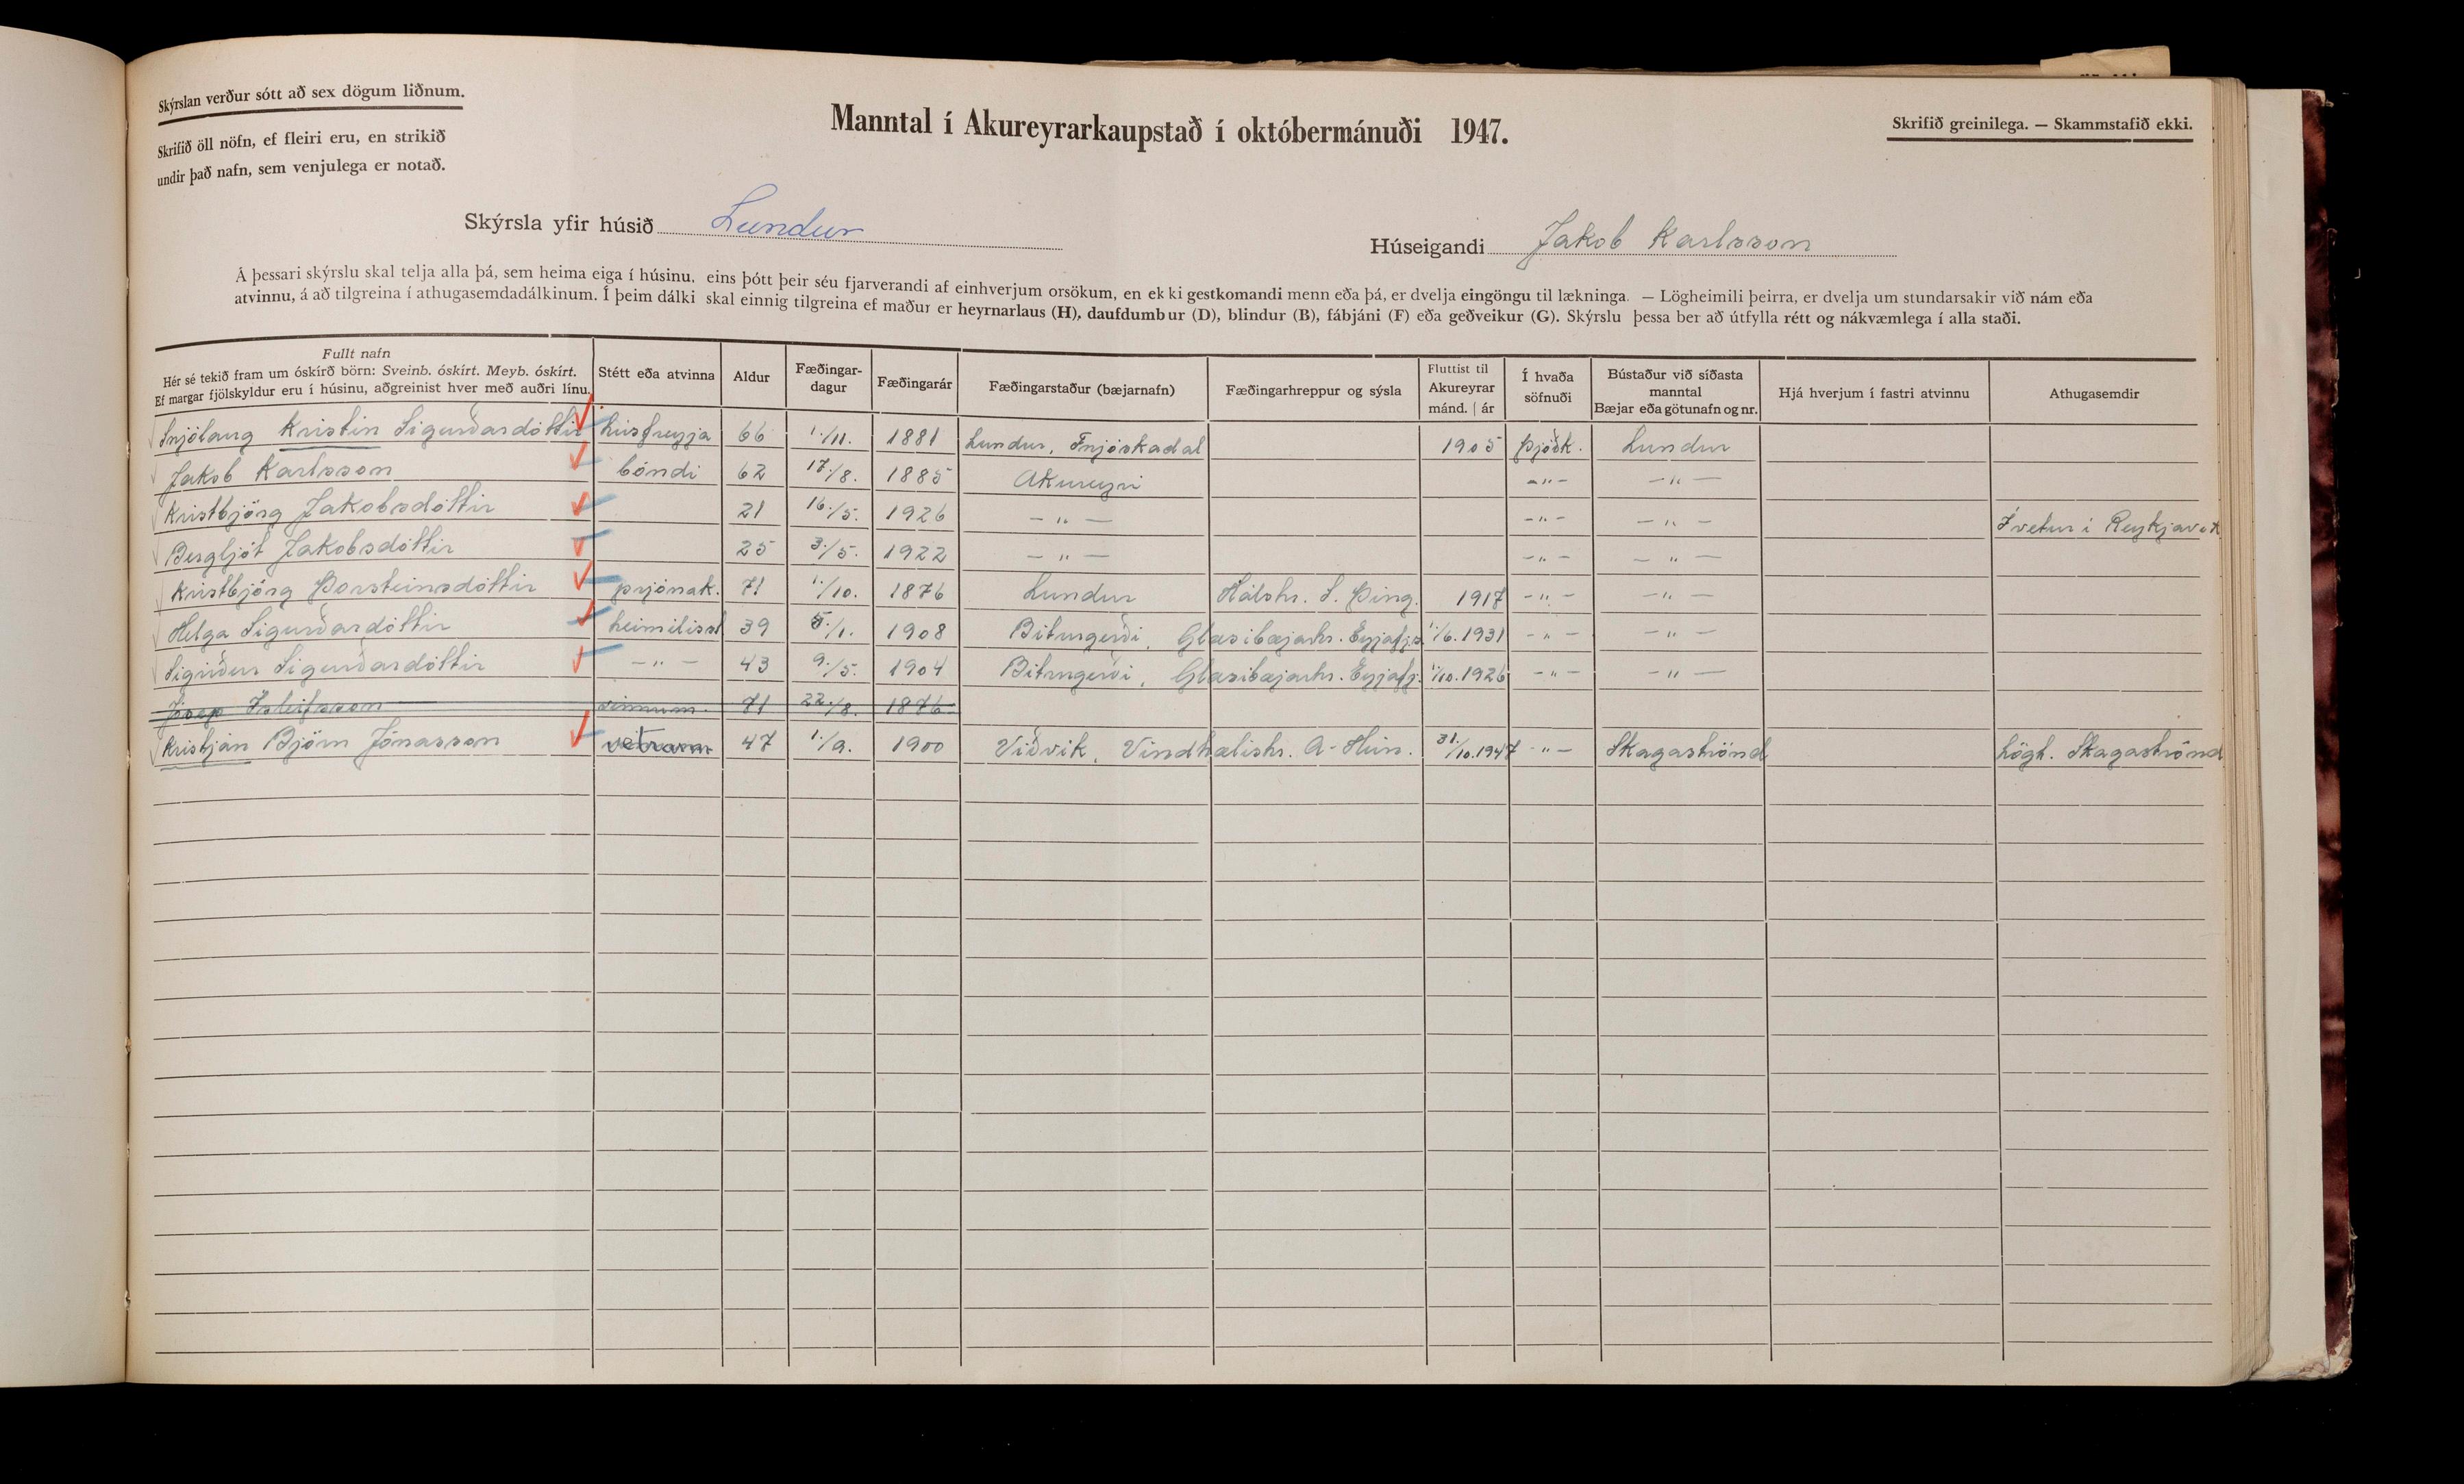 Skýrslan verður sótt að sex dögum liðnum.
Skrifið öll nöfn, ef fleiri eru, en strikið
undir það nafn, sem venjulega er notað.
Manntal í Akureyrarkaupstað í októbermánuði 1947.
Skrifið greinilega. — Skammstafið ekki.
Skýrsla yfir húsið Lundur
Húseigandi Jakob Karlsson
Á þessari skýrslu skal telja alla þá, sem heima eiga í húsinu, eins þótt þeir séu fjarverandi af einhverjum orsökum, en ekki gestkomandi menn eða þá, er dvelja eingöngu til lækninga. — Lögheimili þeirra, er dvelja um stundarsakir við nám eða
atvinnu, á að tilgreina í athugasemdadálkinum. Í þeim dálki skal einnig tilgreina ef maður er heyrnarlaus (H), daufdumbur (D), blindur (B), fábjáni (F) eða geðveikur (G). Skýrslu þessa ber að útfylla rétt og nákvæmlega í alla staði.
Fullt nafn
Hér sé tekið fram um óskírð börn: Sveinb. óskírt. Meyb. óskírt.
Ef margar fjölskyldur eru í húsinu, aðgreinist hver með auðri línu.
Stétt eða atvinna
Aldur
Fæðingar-
dagur
Fæðingarár
Fæðingarstaður (bæjarnafn)
Fæðingarhreppur og sýsla
Fluttist til
Akureyrar
mánd. | ár
Í hvaða
söfnuði
Bústaður við síðasta
manntal
Bæjar eða götunafn og nr.
Hjá hverjum í fastri atvinnu
Athugasemdir
Snjólaug Kristín Sigurðardóttir húsfreyja 66 1./11. 1881 Lundur, Fnjóskadal 1905 þjóðk. Lundur
Jakob Karlsson bóndi 62 17./8. 1885 Akureyri -"- -"-
Kristbjörg Jakobsdóttir 21 16./5. 1926 -"- -"- -"- Í vetur í Reykjavík
Bergljót Jakobsdóttir 25 3./5. 1922 -"- -"- -"-
Kristbjörg Þorsteinsdóttir prjónak. 71 1./10. 1876 Lundur Hálshr. S. Þing. 1917 -"- -"-
Helga Sigurðardóttir heimilisst 39 5./1. 1908 Bitrugerði, Glæsibæjarhr. Eyjafj.s. 1./6. 1931 -"- -"-
Sigríður Sigurðardóttir -"- 43 9./5. 1904 Bitrugerði, Glæsibæjarhr. Eyjafj. 1./10. 1926 -"- -"-
Jósep Ísleifsson vinnum. 71 22./8. 1876
Kristján Björn Jónasson vetrarm 47 1./9. 1900 Viðvik, Vindhælishr. A-Hún. 31./10. 1947 -"- Skagaströnd lögh. Skagaströnd